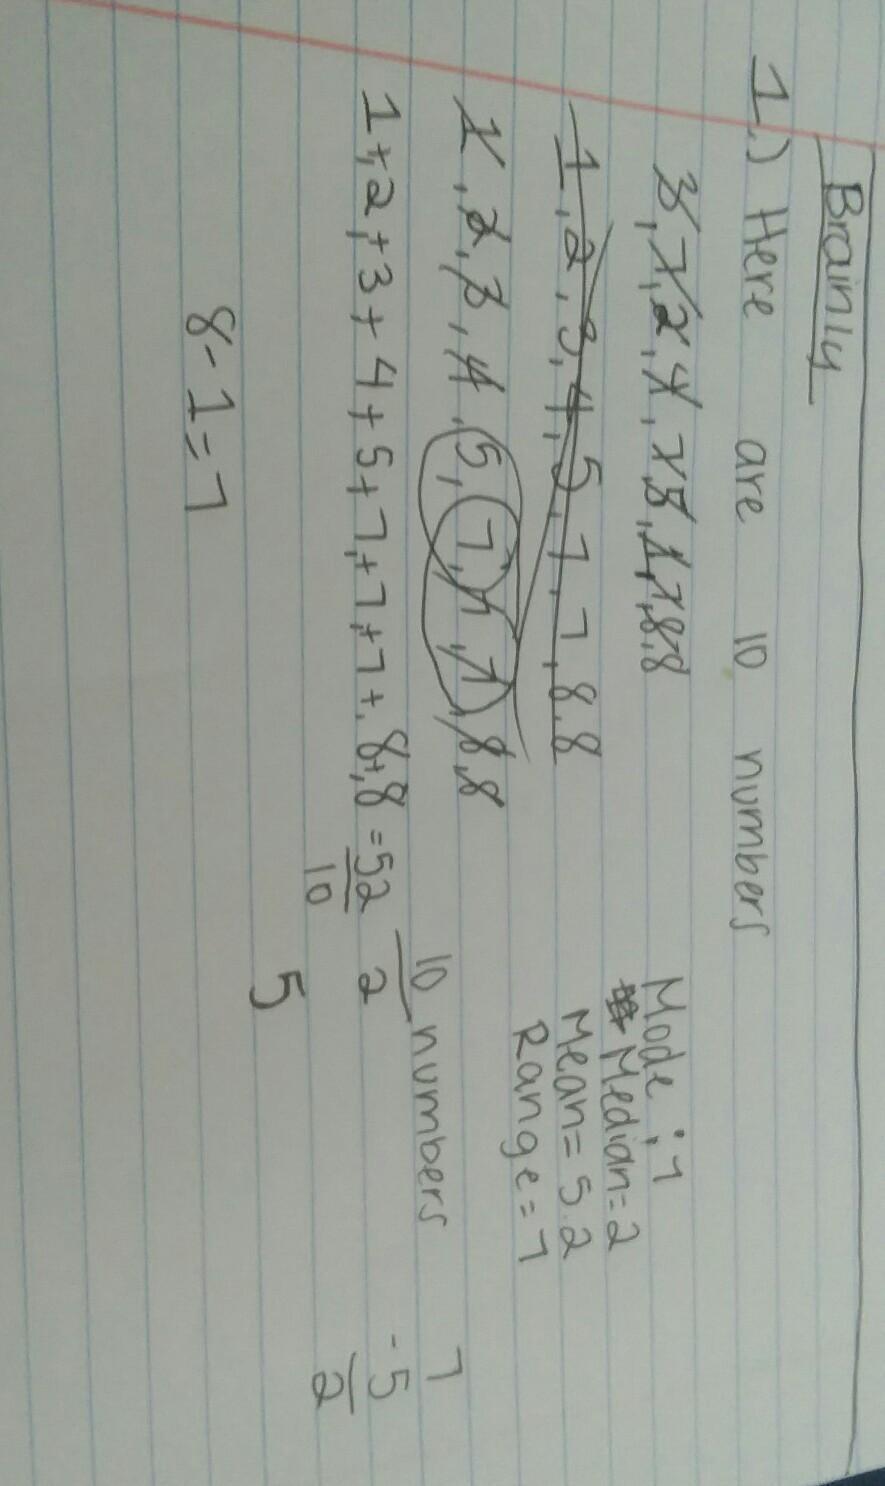 Brainly
1.) Here are 10 numbers
3, 7, 2, 4, 7 5, 1, 7, 8, 8
1, 2, 3, 4, 5, 7, 7, 8, 8
1, 2, 3, 4, 5, 7, 7, 7, 8, 8
1+, 2, +3, + 4, + 5 + 7, + 7, + 7 +, 8+, 8 = 52
10
8 - 1 = 7
Mode : 7
Median = 2
Mean = 5.2
Range = 7
10 numbers
2
5
7
- 5
2